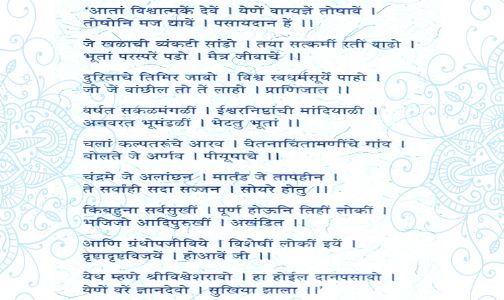 ‘आतां विश्वात्मकें देवें । येणें वाग्यज्ञें तोषावें ।
तोषोनि मज द्यावें । पसायदान हें ।।
जे खळाची व्यंकटी सांडो । तया सत्कर्मी रती वाढो ।
भूतां परस्परें पडो । मैत्र जीवाचें ।।
दुरिताचे तिमिर जावो । विश्व स्वधर्मसूर्यें पाहो ।
जो जें वांछील तो तें लाहो । प्राणिजात ।।
वर्षत सकळमंगळीं । ईश्वरनिष्ठांची मांदियाळी ।
अनवरत भूमंडळीं । भेटतु भूतां ।।
चलां कल्पतरूंचे आरव । चेतनाचिंतामणींचे गांव ।
बोलते जे अर्णव । पीयूषाचे ।।
चंद्रमे जे अलांछन । मार्तंड जे तापहीन ।
ते सर्वांही सदा सज्जन । सोयरे होतु ।।
किंबहुना सर्वसुखीं । पूर्ण होऊनि तिहीं लोकीं ।
भजिजो आदिपुरुखीं । अखंडित ।।
आणि ग्रंथोपजीविये । विशेषीं लोकीं इयें ।
दृष्टादृष्टविजयें । होआवें जी ।।
येथ म्हणे श्रीविश्वेशरावो । हा होईल दानपसावो ।
येणें वरें ज्ञानदेवो । सुखिया झाला ।।’